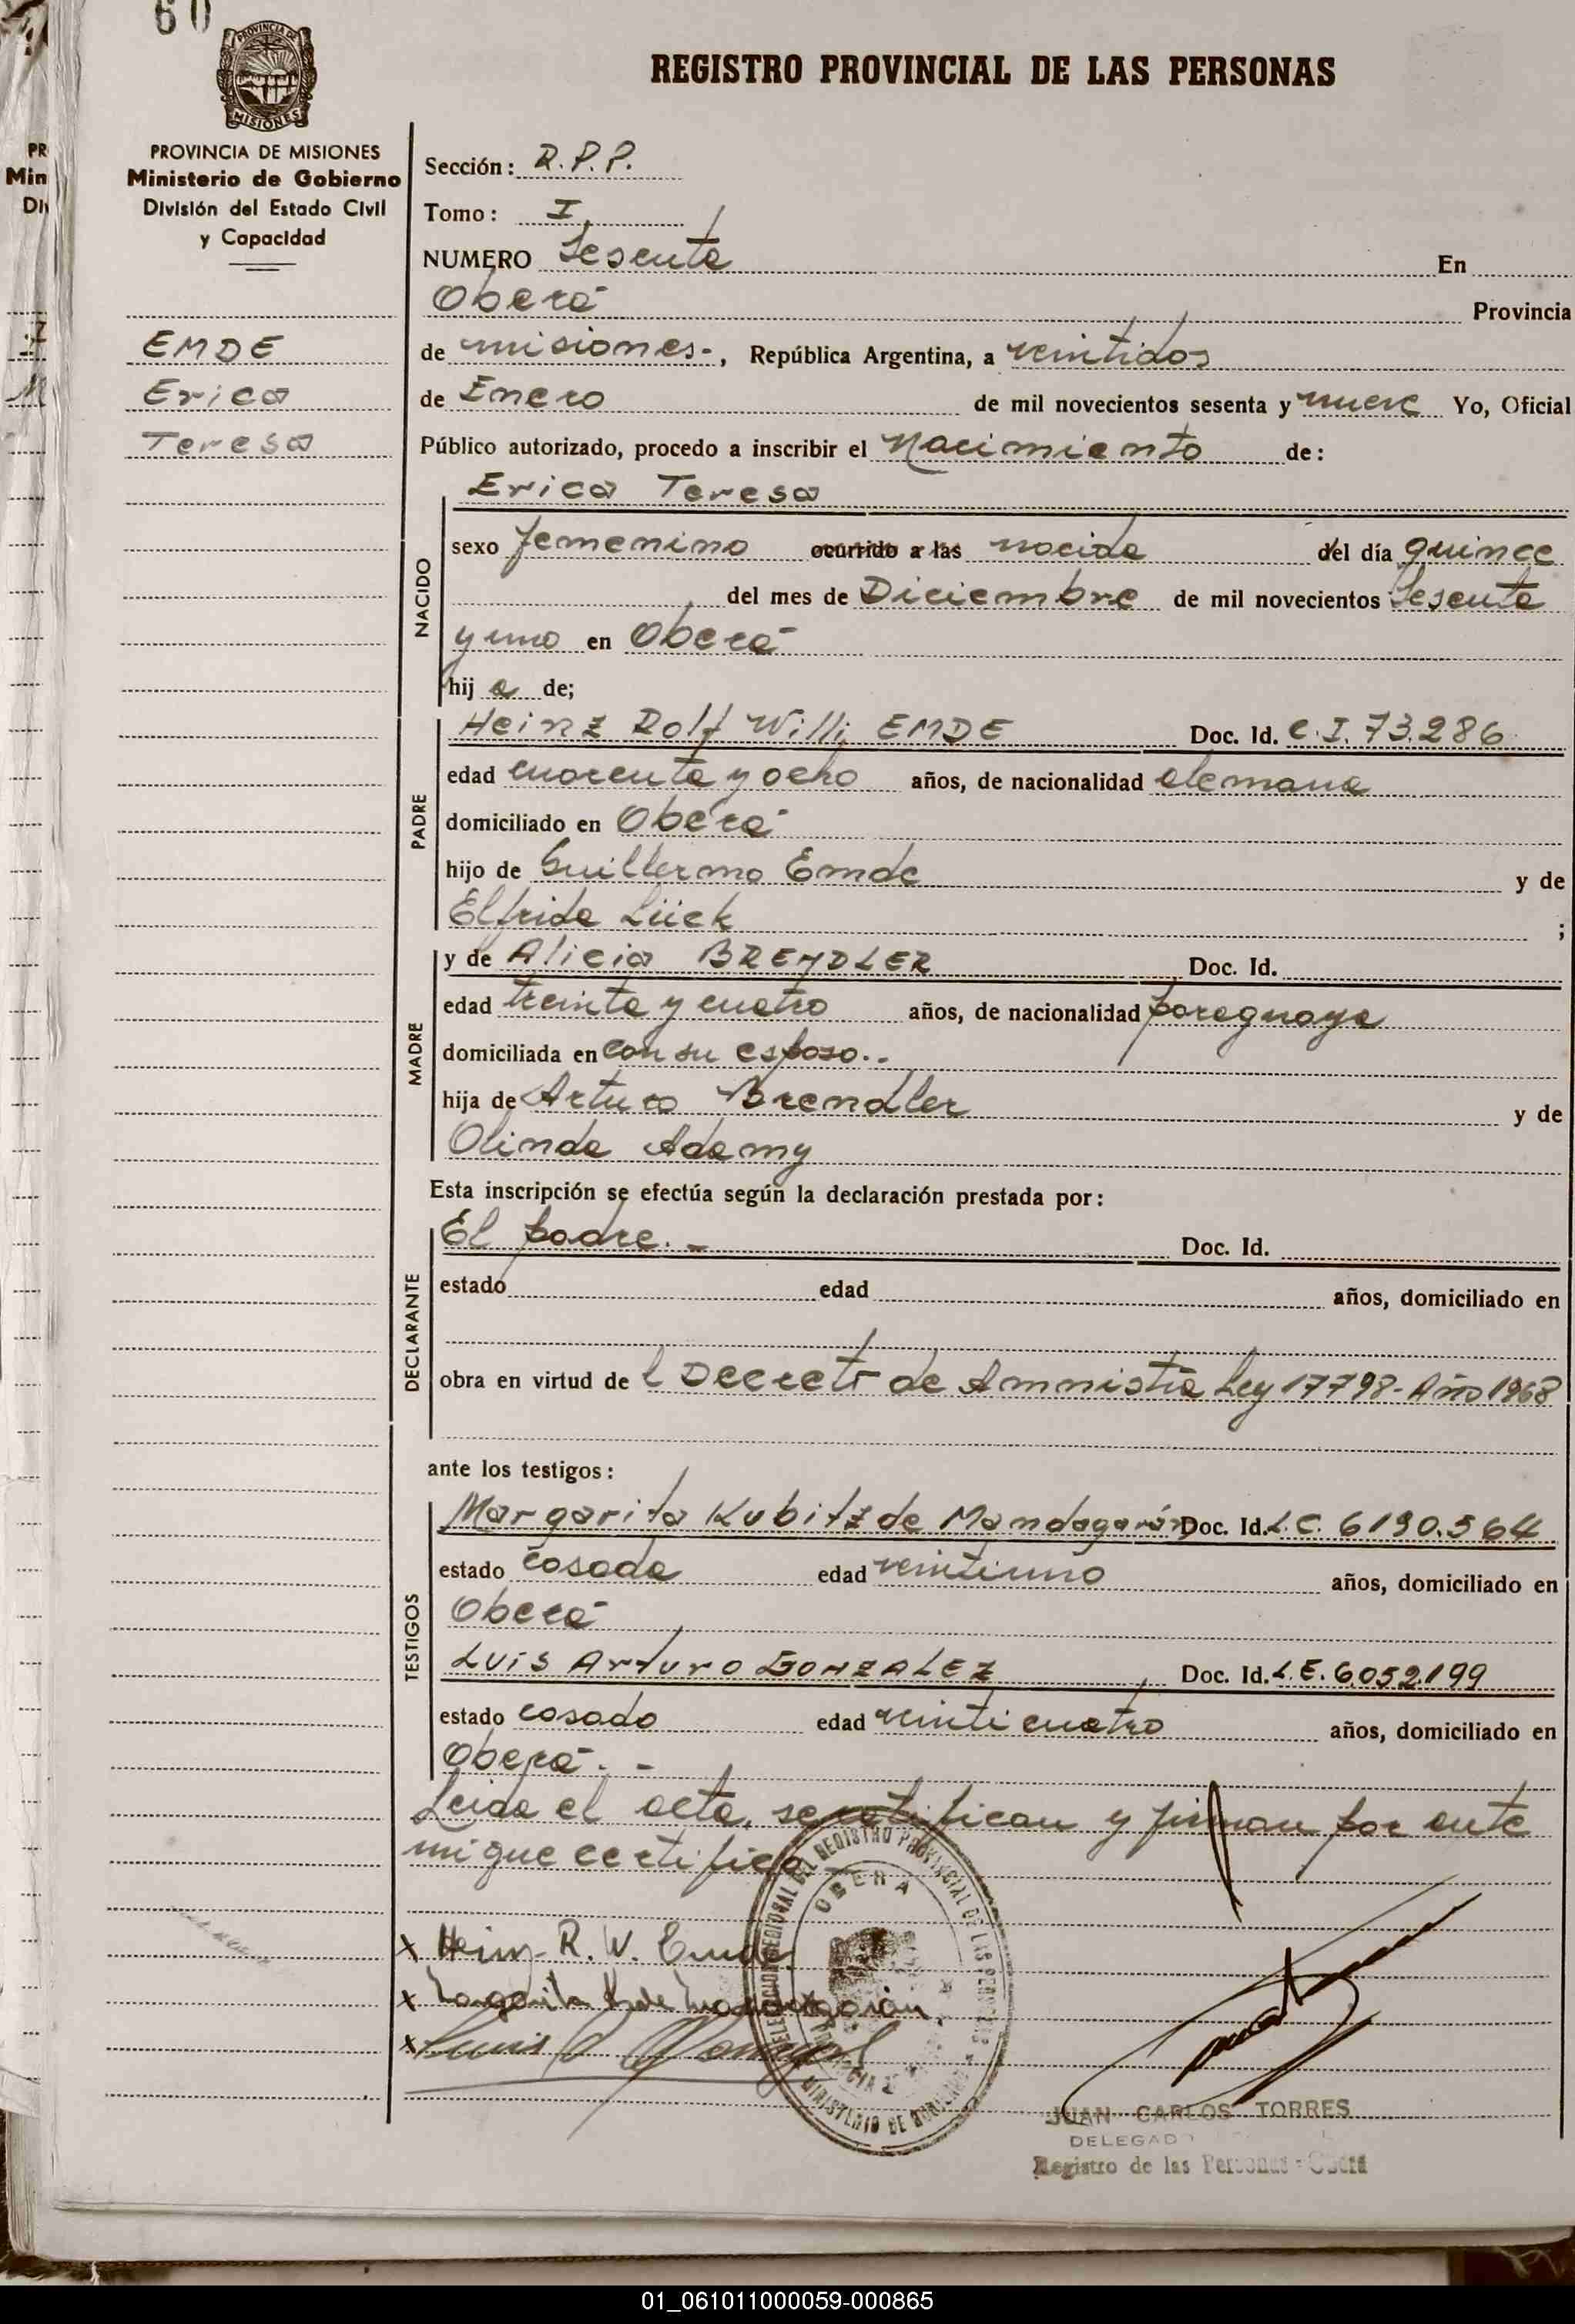 60
REGISTRO PROVINCIAL DE LAS PERSONAS
PROVINCIA DE MISIONES
PROVINCIA DE MISIONES
Ministerio de Gobierno
División del Estado Civil
y Capacidad
EMDE
Erica
Teresa
Sección: R.P.P.
Tomo: I
NUMERO Sesenta En
Oberá Provincia
de misiones-, República Argentina, a veintidos
de Enero de mil novecientos sesenta y nueve Yo, Oficial
Público autorizado, procedo a inscribir el Nacimiento de:
Erica Teresa
NACIDO
sexo femenino ocurrido a las nacida del día quince
del mes de Diciembre de mil novecientos Sesenta
y uno en Oberá
hij a de;
PADRE
Heinz Rolf Willi EMDE Doc. Id. C.I. 73.286
edad cuarenta y ocho años, de nacionalidad alemana
domiciliado en Oberá
hijo de Guillermo Emde y de
Elfrida Lück ;
MADRE
y de Alicia BRENDLER Doc. Id.
edad treinta y cuatro años, de nacionalidad paraguaya
domiciliada en con su esposo.-
hija de Arturo Brendler y de
Olinda Adamy
Esta inscripción se efectúa según la declaración prestada por:
DECLARANTE
El padre.- Doc. Id.
estado edad años, domiciliado en
obra en virtud de l Decreto de Amnistia Ley 17798- Año 1968
ante los testigos:
TESTIGOS
Margarita Kubitz de Mandagarán Doc. Id. L.C. 6190.564
estado casada edad veintiuno años, domiciliado en
Oberá
Luis Arturo GONZALEZ Doc. Id. L.E. 6.052.199
estado casado edad veinticuatro años, domiciliado en
Oberá.-
Leida el acta, se ratifican y firman por ante
mi que certifico
DELEGACION REGIONAL DEL REGISTRO PROVINCIAL DE LAS PERSONAS
OBERA
MINISTERIO DE GOBIERNO
x Heinz R. W. Emde
x Margarita K. de Mandagarán
x Luis A Gonzalez
JUAN CARLOS TORRES
DELEGADO
Registro de las Personas - Oberá
01_061011000059-000865